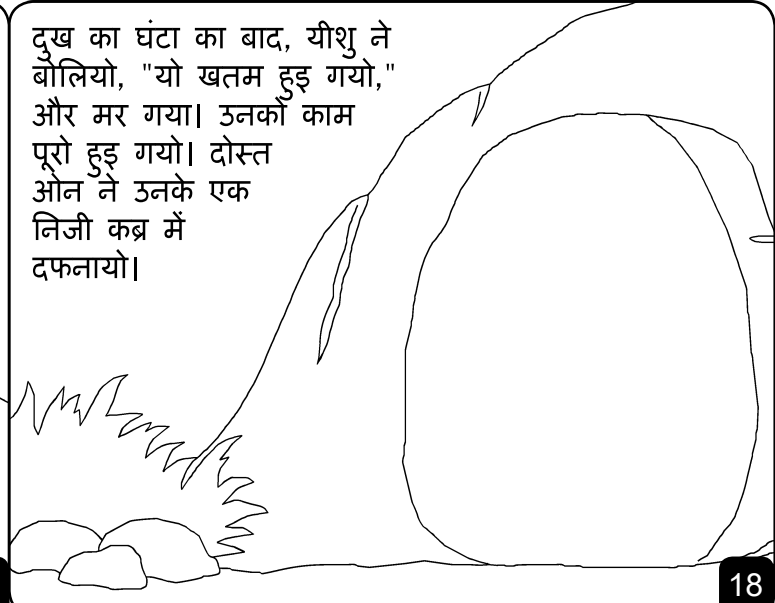 दुख का घंटा का बाद, यीशु ने
बोलियो, "यो खतम हुइ गयो,"
और मर गया। उनको काम
पूरो हुइ गयो। दोस्त
ओन ने उनके एक
निजी कब्र में
दफनायो।
18